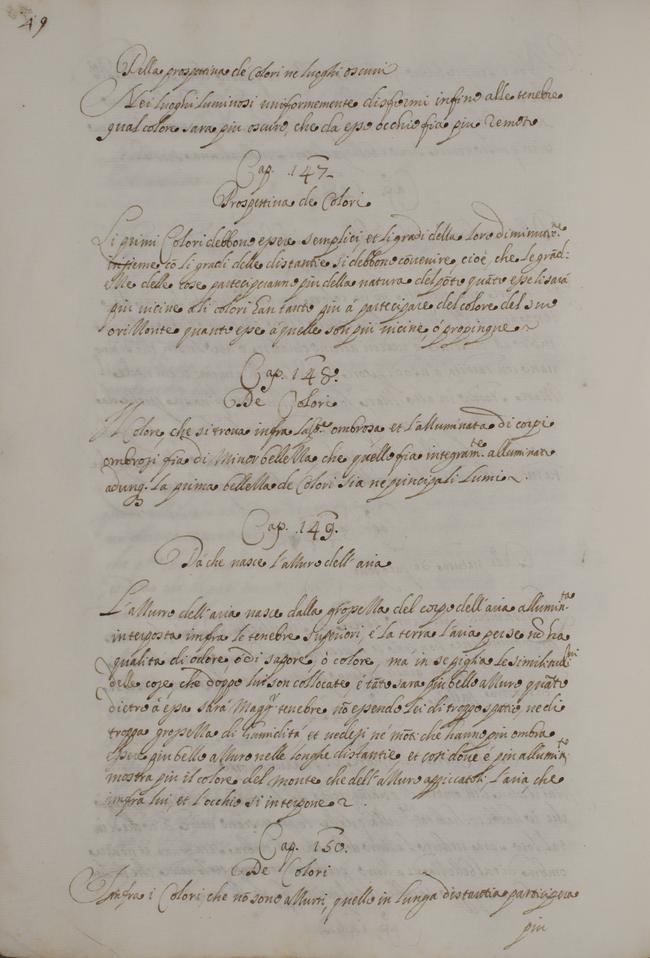 49
Della prospettiva de Colori ne luoghi oscuri
Nei luoghi luminosi uniformemente disformi infino alle tenebre
qual colore sara piu oscuro, che da esso occhio fia piu remoto
Cap. 147
Prospettiva de Colori
Li primi Colori debbono essere semplici, et li gradi della loro diminuzne
insieme cō li gradi delle distantie si debbono convenire cioè, che le grād:
ezze delle cose parteciperanno piu della natura del pōto quāto esse li sarā
piu vicine et li colori han tanto piu á partecipare del colore del suo
orizzonte quanto esse á quello son piu vicine, ó propinque
Cap. 148.
De Colori
Il Colore, che si trova infra la pte ombrosa et l'alluminata di corpi
ombrosi fia di Minor bellezza, che quello fia integramte. alluminato
adunq. la prima bellezza de Colori sia ne principali Lumi
Cap. 149.
Da che nasce l'azzuro dell'aria
L'azzurro dell'aria nasce dalla grossezza del corpo dell'aria alluminta
interposta infra le tenebre superiori, é la terra l'aria per se nō ha
qualita di odore ō di sapore, ò colore, má in se piglia le similitudini
delle cose, che doppo lui son collocate é tāto sara piu bello azzuro, quāto
dietro á essa sará Maggr. tenebre nō essendo lei di troppo spatio ne di
troppa grossezza di humiditá et vedesi ne mōti che hanno piu ombra
essere piu bello azzuro nelle longhe distantie et cosi dove é piu allumināto
mostra piu il colore del monte che dell'azzuro appiccatoli l'aria, che
imfra lui, et l'occhio si interpone
Cap. 150.
De Colori
Imfra i Colori, che nō sono azzurri, quello in lunga distantia participera
piu